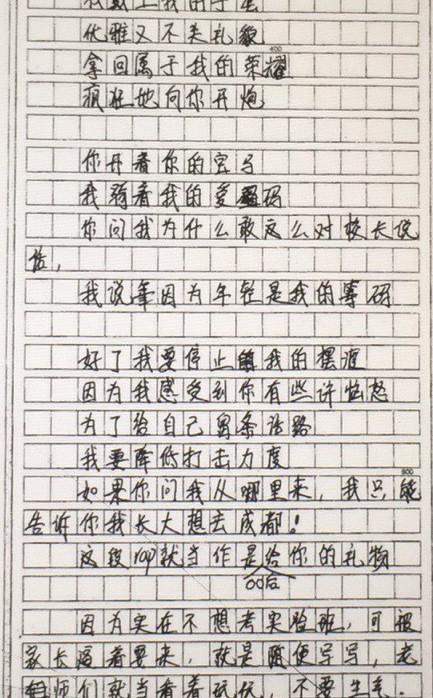 我戴上我的手套
优雅又不失礼貌
400
拿回属于我的荣耀
疯狂地向你开炮
你丹着你的宝马
我骑着我的爱玛
你问我为什么敢这么对校长说
话,
我说因为年轻是我的筹码
好了我要停止我的摆渡
因为我感受到你有些许恼怒
为了给自己留条活路
我要降低打击力度
800
如果你问我从哪里来,我只能
告诉你我长大想去成都!
这段rap就当作是给你的礼物
00后
因为实在不想考实验班,可被
家长逼着要来,就是随便写写,老
师们就当看着玩伏,不要生气